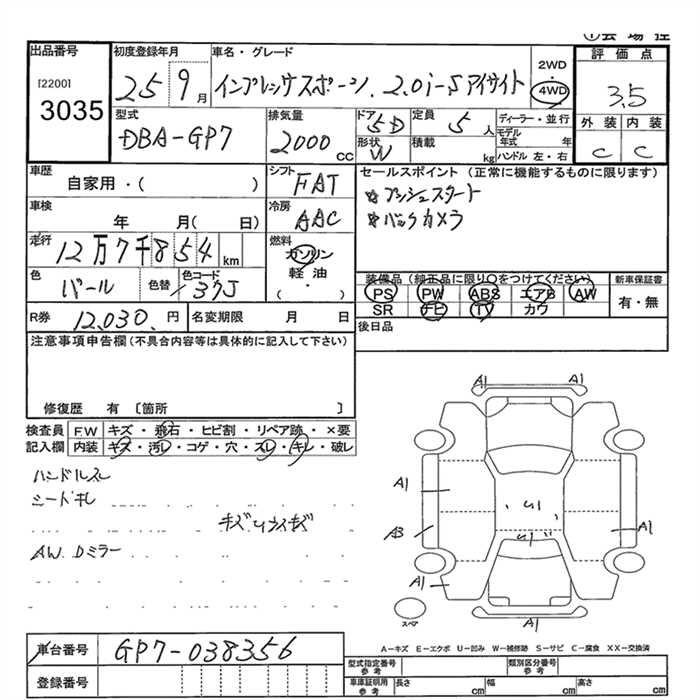 出品番号 初度登録年月 車名・グレード 2WD 評価点
[2200] 3035
25 9月 インプレッサスポーツ. 2.0i-S アイサイト 4WD 3.5
型式 DBA-GP7 排気量 2000 cc
ドア 5D 定員 5人 ディーラー・並行
形状 W 積載 kg モデル年式 年
ハンドル 左・右
外装 内装
C C
車歴 自家用・( )
シフト FAT
セールスポイント (正常に機能するものに限ります)
☆プッシュスタート
☆バックカメラ
車検 年 月( 日)
冷房 AAC
走行 12万7千854km
燃料 ガソリン・軽油・( )
色 パール 色替 / 色コード 37J
装備品(純正品に限り○をつけてください) 新車保証書
PS PW ABS エアB AW 有・無
SR ナビ TV カワ
R券 12,030.円 名変期限 月 日
後日品
注意事項申告欄(不具合内容等は具体的に記入して下さい)
修復歴 有 〔箇所 〕
検査員 F.W キズ・飛石・ヒビ割・リペア跡・×要
記入欄 内装 キズ・汚レ・コゲ・穴・スレ・キレ・破レ
ハンドルスレ
シートキレ
キズ Uライキズ
AW. Dミラー
A1 A1
A1
U1
A3 A1
U1
A1
スペア A1
車台番号 GP7-038356
登録番号
A-キズ E-エクボ U-凹み W-補修跡 S-サビ C-腐食 XX-交換済
型式指定番号 参考 類別区分番号 参考
車庫証明用 参考 長さ cm 幅 cm 高さ cm